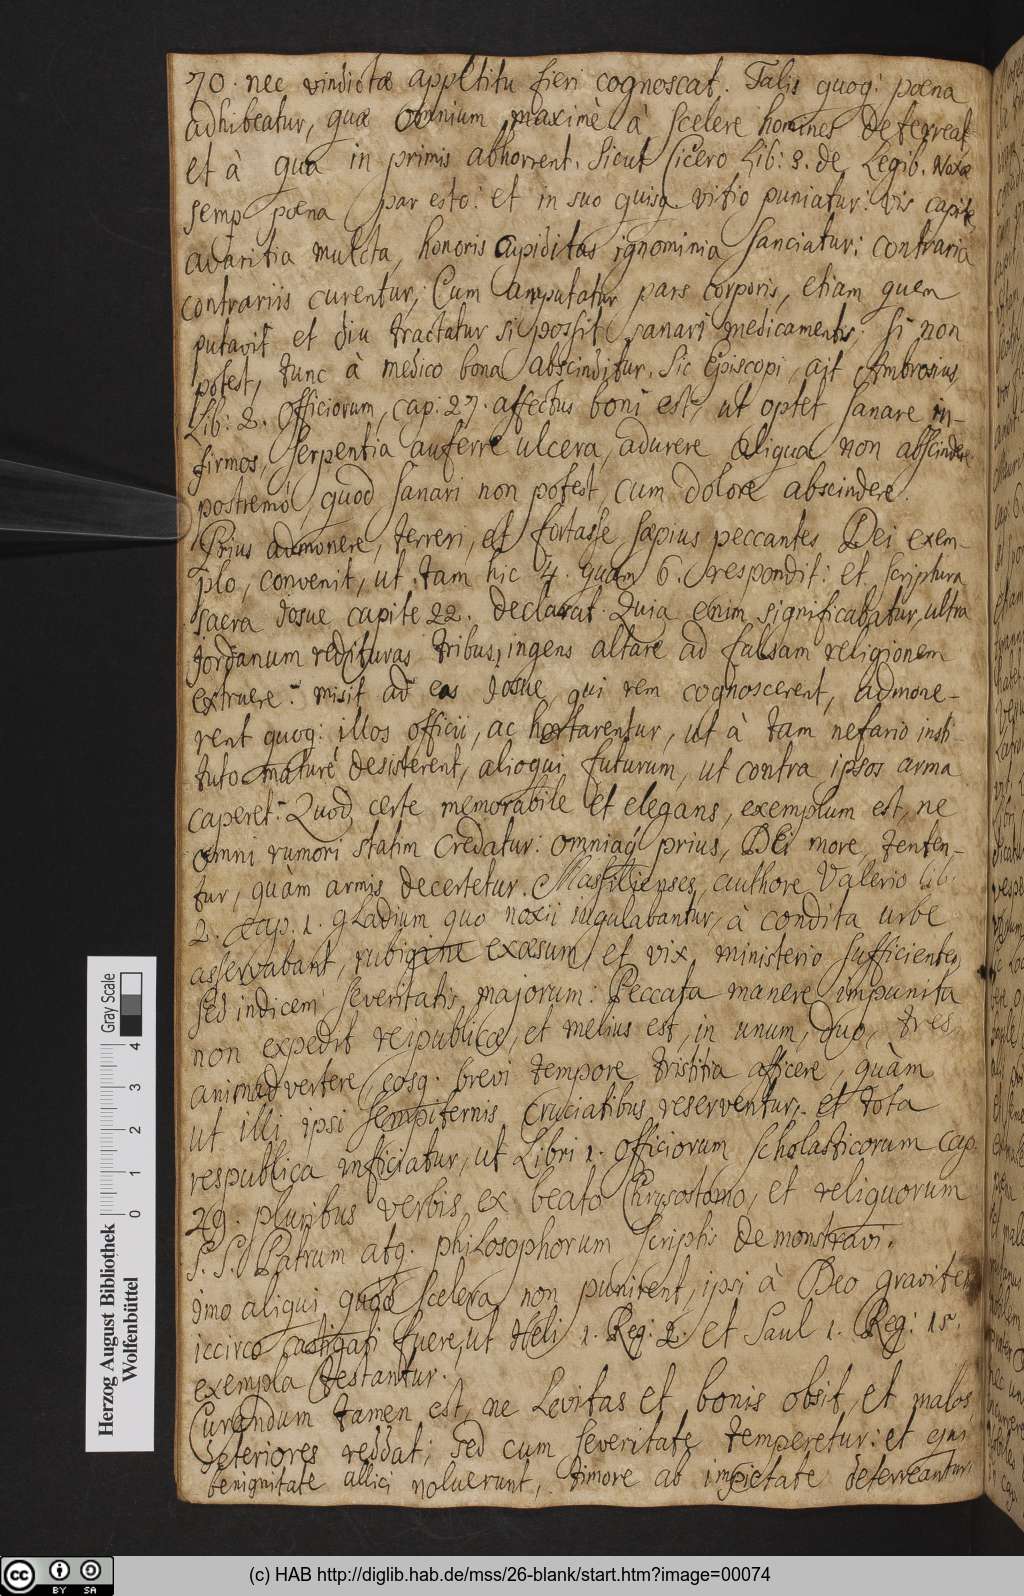 70. nec vindictæ appetitu fieri cognoscat. Talis quoq; pœna
adhibeatur, quæ omnium maximè à scelere homines deterreat
et à qua in primis abhorrent. Sicut Cicero Lib: 3. de Legib. Noxæ
semp pœna par esto: et in suo quisq vitio puniatur: vis capite
avaritia mulcta, honoris cupiditas ignominia sanciatur: contraria
contrariis curentur; Cum amputatur pars corporis, etiam quem
putavit et diu tractatur si possit sanari medicamentis; si non
potest, tunc à medico bona abscinditur. Sic Episcopi, ait Ambrosius
Lib: 2. Officiorum, cap: 27. affectus boni est, ut optet sanare in-
firmos, serpentia auferre ulcera, adurere aliqua non abscindere
postremò, quod sanari non potest, cum dolore abscindere.
Prius admonere, terreri, et fortasse sæpius peccantes Dei exem-
plo, convenit, ut tam hic 4. quam 6. respondit: et scriptura
sacra Josue capite 22. declarat. Quia enim significabatur, ultra
Jordanum redituras tribus, ingens altare ad falsam religionem
extruere: misit ad eas Josue, qui rem cognoscerent, admone-
rent quoq: illos officii, ac hortarentur, ut à tam nefario insti-
tuto maturé desisterent, alioqui futurum, ut contra ipsos arma
caperet: Quod certe memorabile et elegans, exemplum est, ne
omni rumori statim credatur: omniaq́ prius, DEi more, tenten-
tur, quàm armis decertetur. Massilienses, authore Valerio lib:
2. cap. 1. gladium quo noxii iugulabantur, à condita urbe
asservabant, rubigine exæsum et vix ministerio sufficientem,
sed indicem severitatis majorum: Peccata manere impunita
non expedit reipublicæ, et melius est, in unum, duo, tres
animadvertere, eosq. brevi tempore tristitia afficere, quàm
ut illi ipsi sempiternis cruciatibus reserventur, et tota
respublica inficiatur, ut Libri 1. Officiorum scholasticorum cap.
29. pluribus verbis ex beato Chrysostomo, et reliquorum
S. S. Patrum atq. philosophorum scriptis demonstravi.
Imo aliqui quod scelera non punirent, ipsi à Deo graviter
iccirco castigati fuere, ut Heli 1. Reg: 2. et Saul 1. Reg: 15.
exempla testantur.
Curandum tamen est, ne Levitas et bonis obsit, et malos
deteriores reddat; sed cum severitate temperetur: et ejus
benignitate allici noluerunt, timore ab impietate deterreantur.
Herzog August Bibliothek
Wolfenbüttel
0 1 2 3 4
Gray Scale
cc BY SA
(c) HAB http://diglib.hab.de/mss/26-blank/start.htm?image=00074